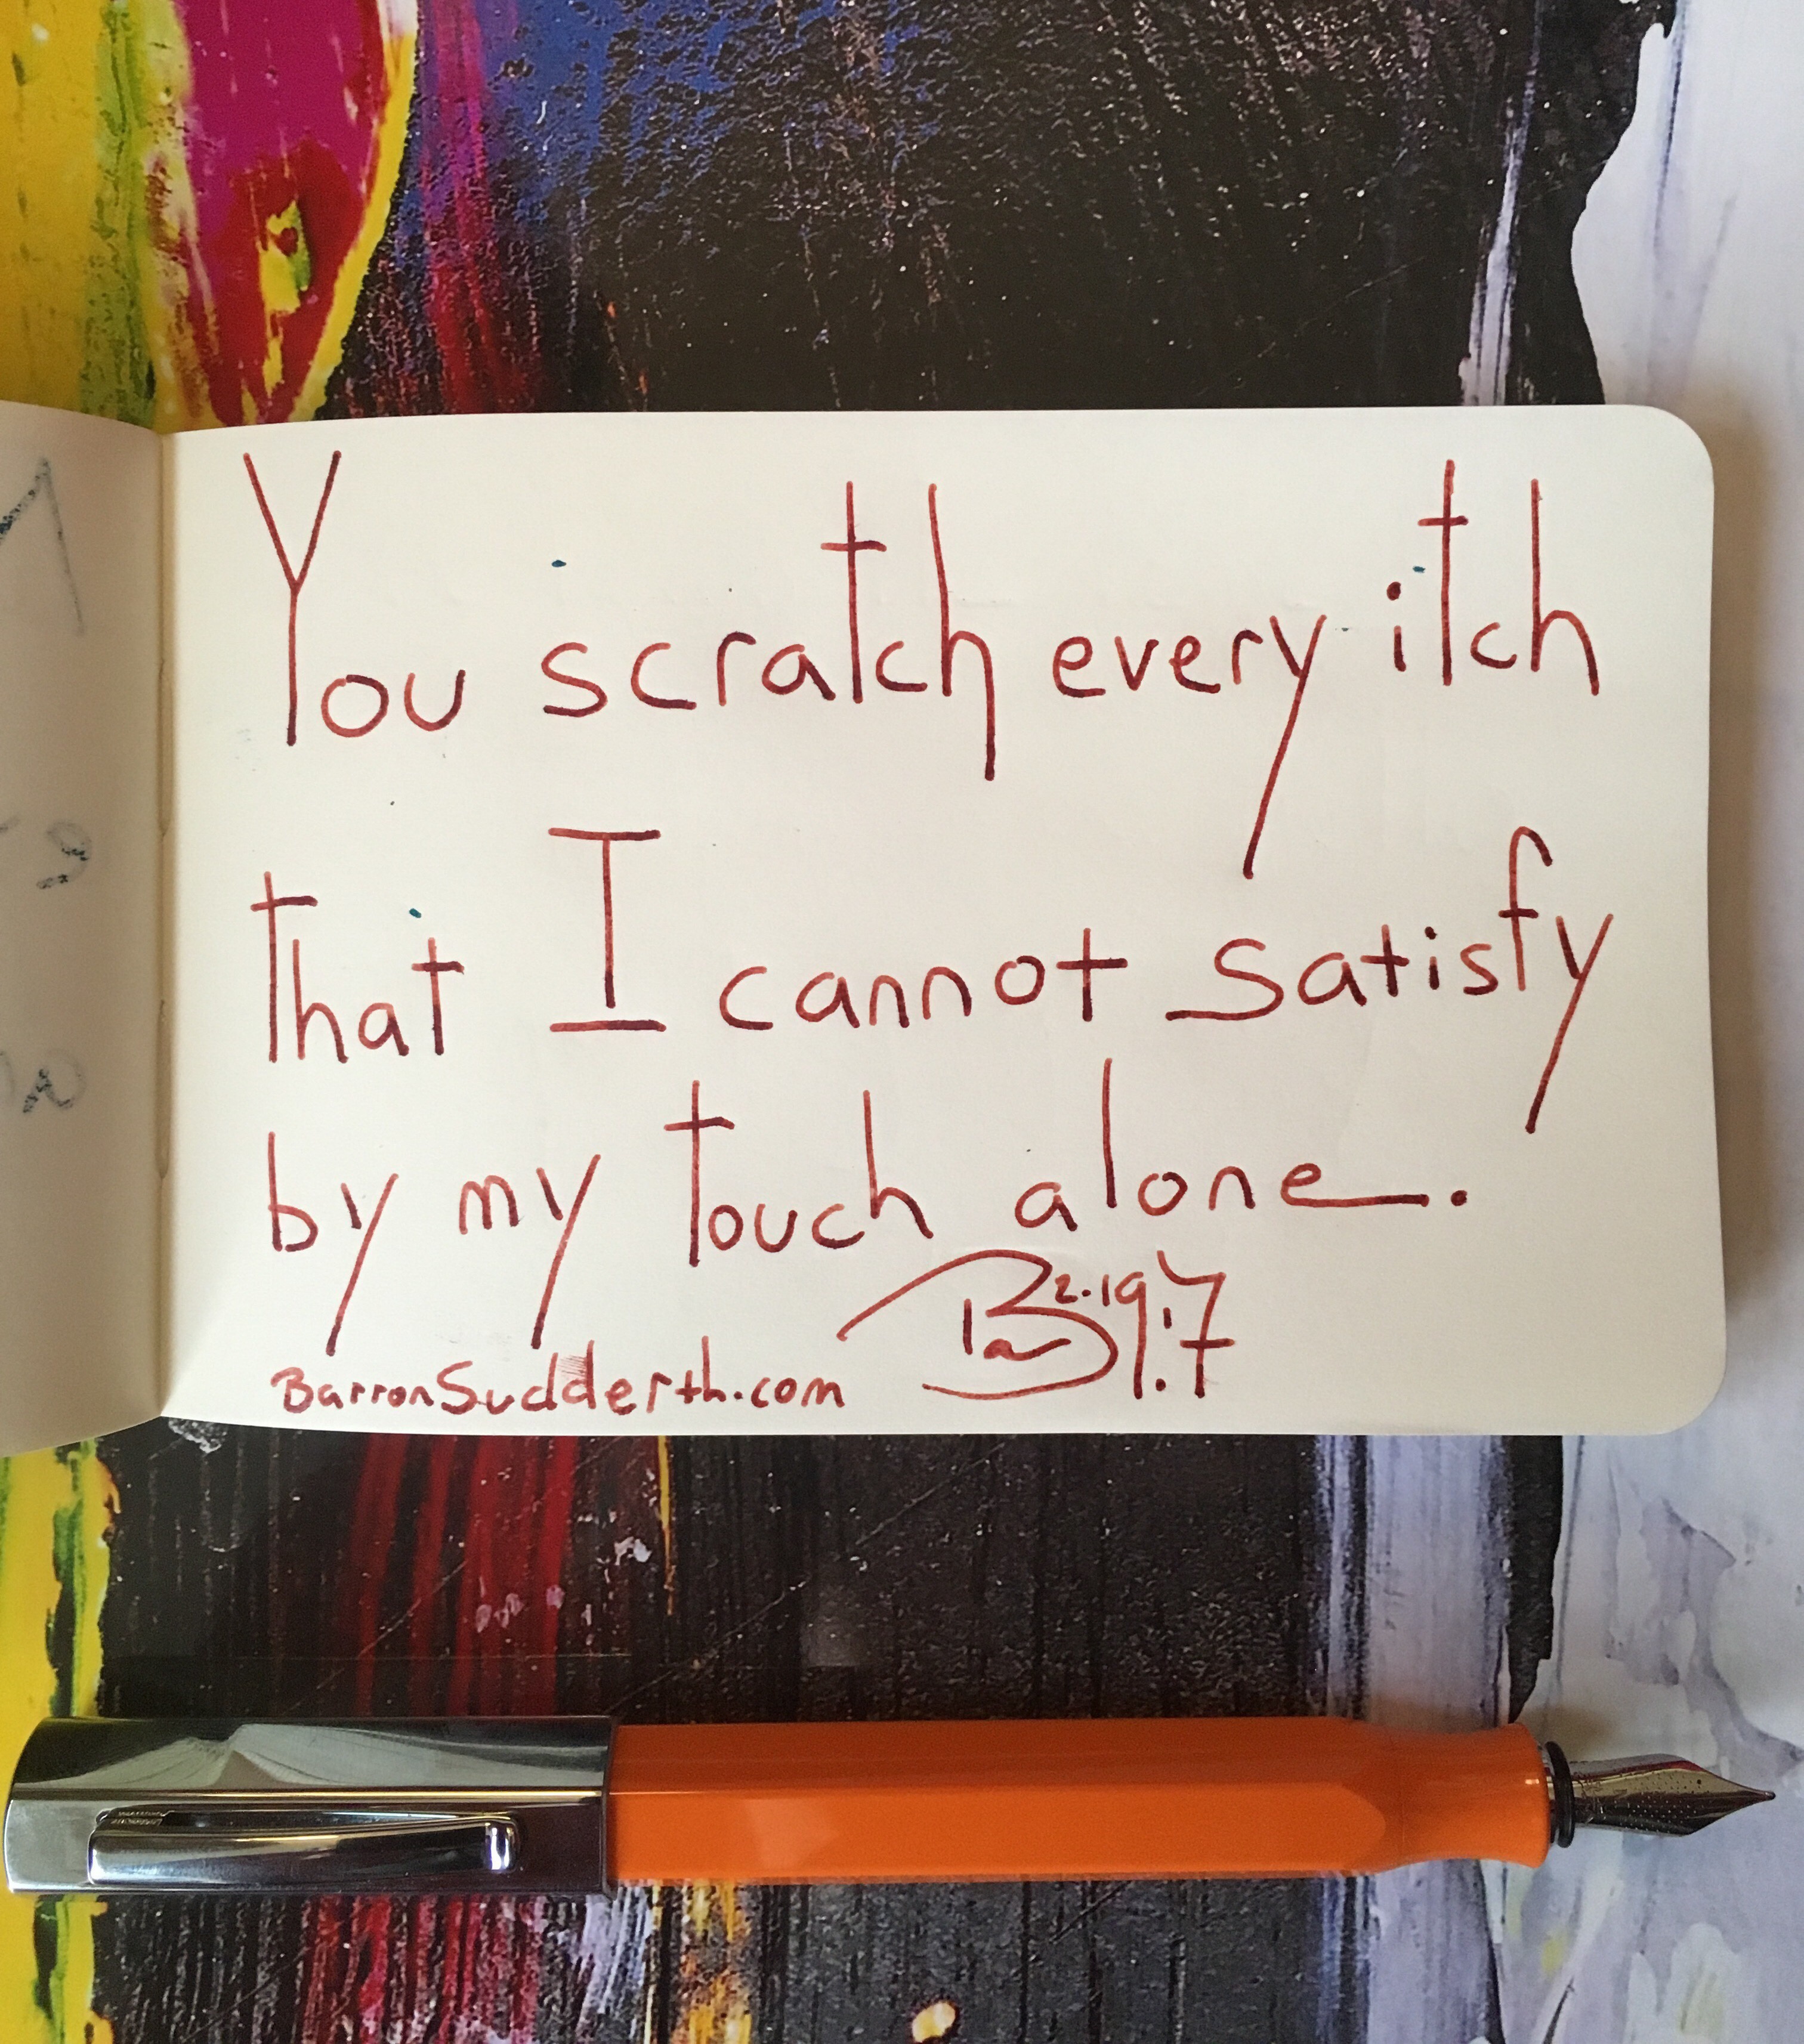 You scratch every itch
that I cannot satisfy
by my touch alone.
2.19.17
BarronSudderth.com